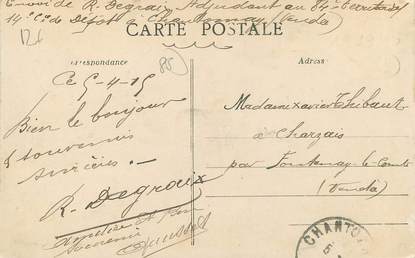 Envoi de R. Degraix, Adjudant au 84e Territorial
14e Cie de Dépôt à Chantonnay (Vendée)
126
CARTE POSTALE
Correspondance
85
Adresse
Ce 5-4-15
Bien le bonjour
& souvenirs
sincères.-
R. Degraix
souvenir
Madame Xavier Thibault
à Charzais
par Fontenay-le-Comte
(Vendée)
CHANTO